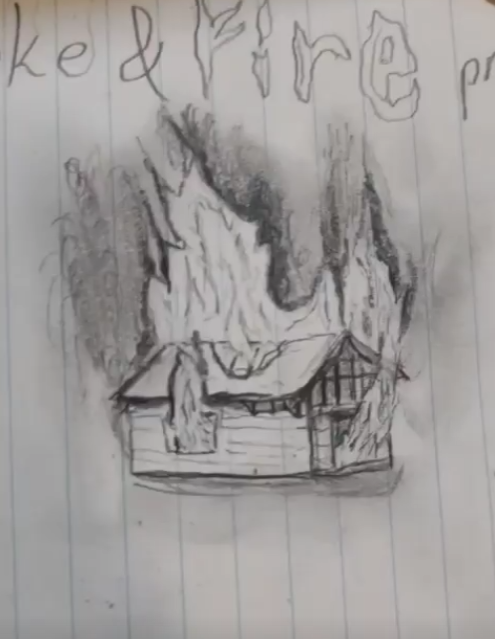 ke & Fire pr